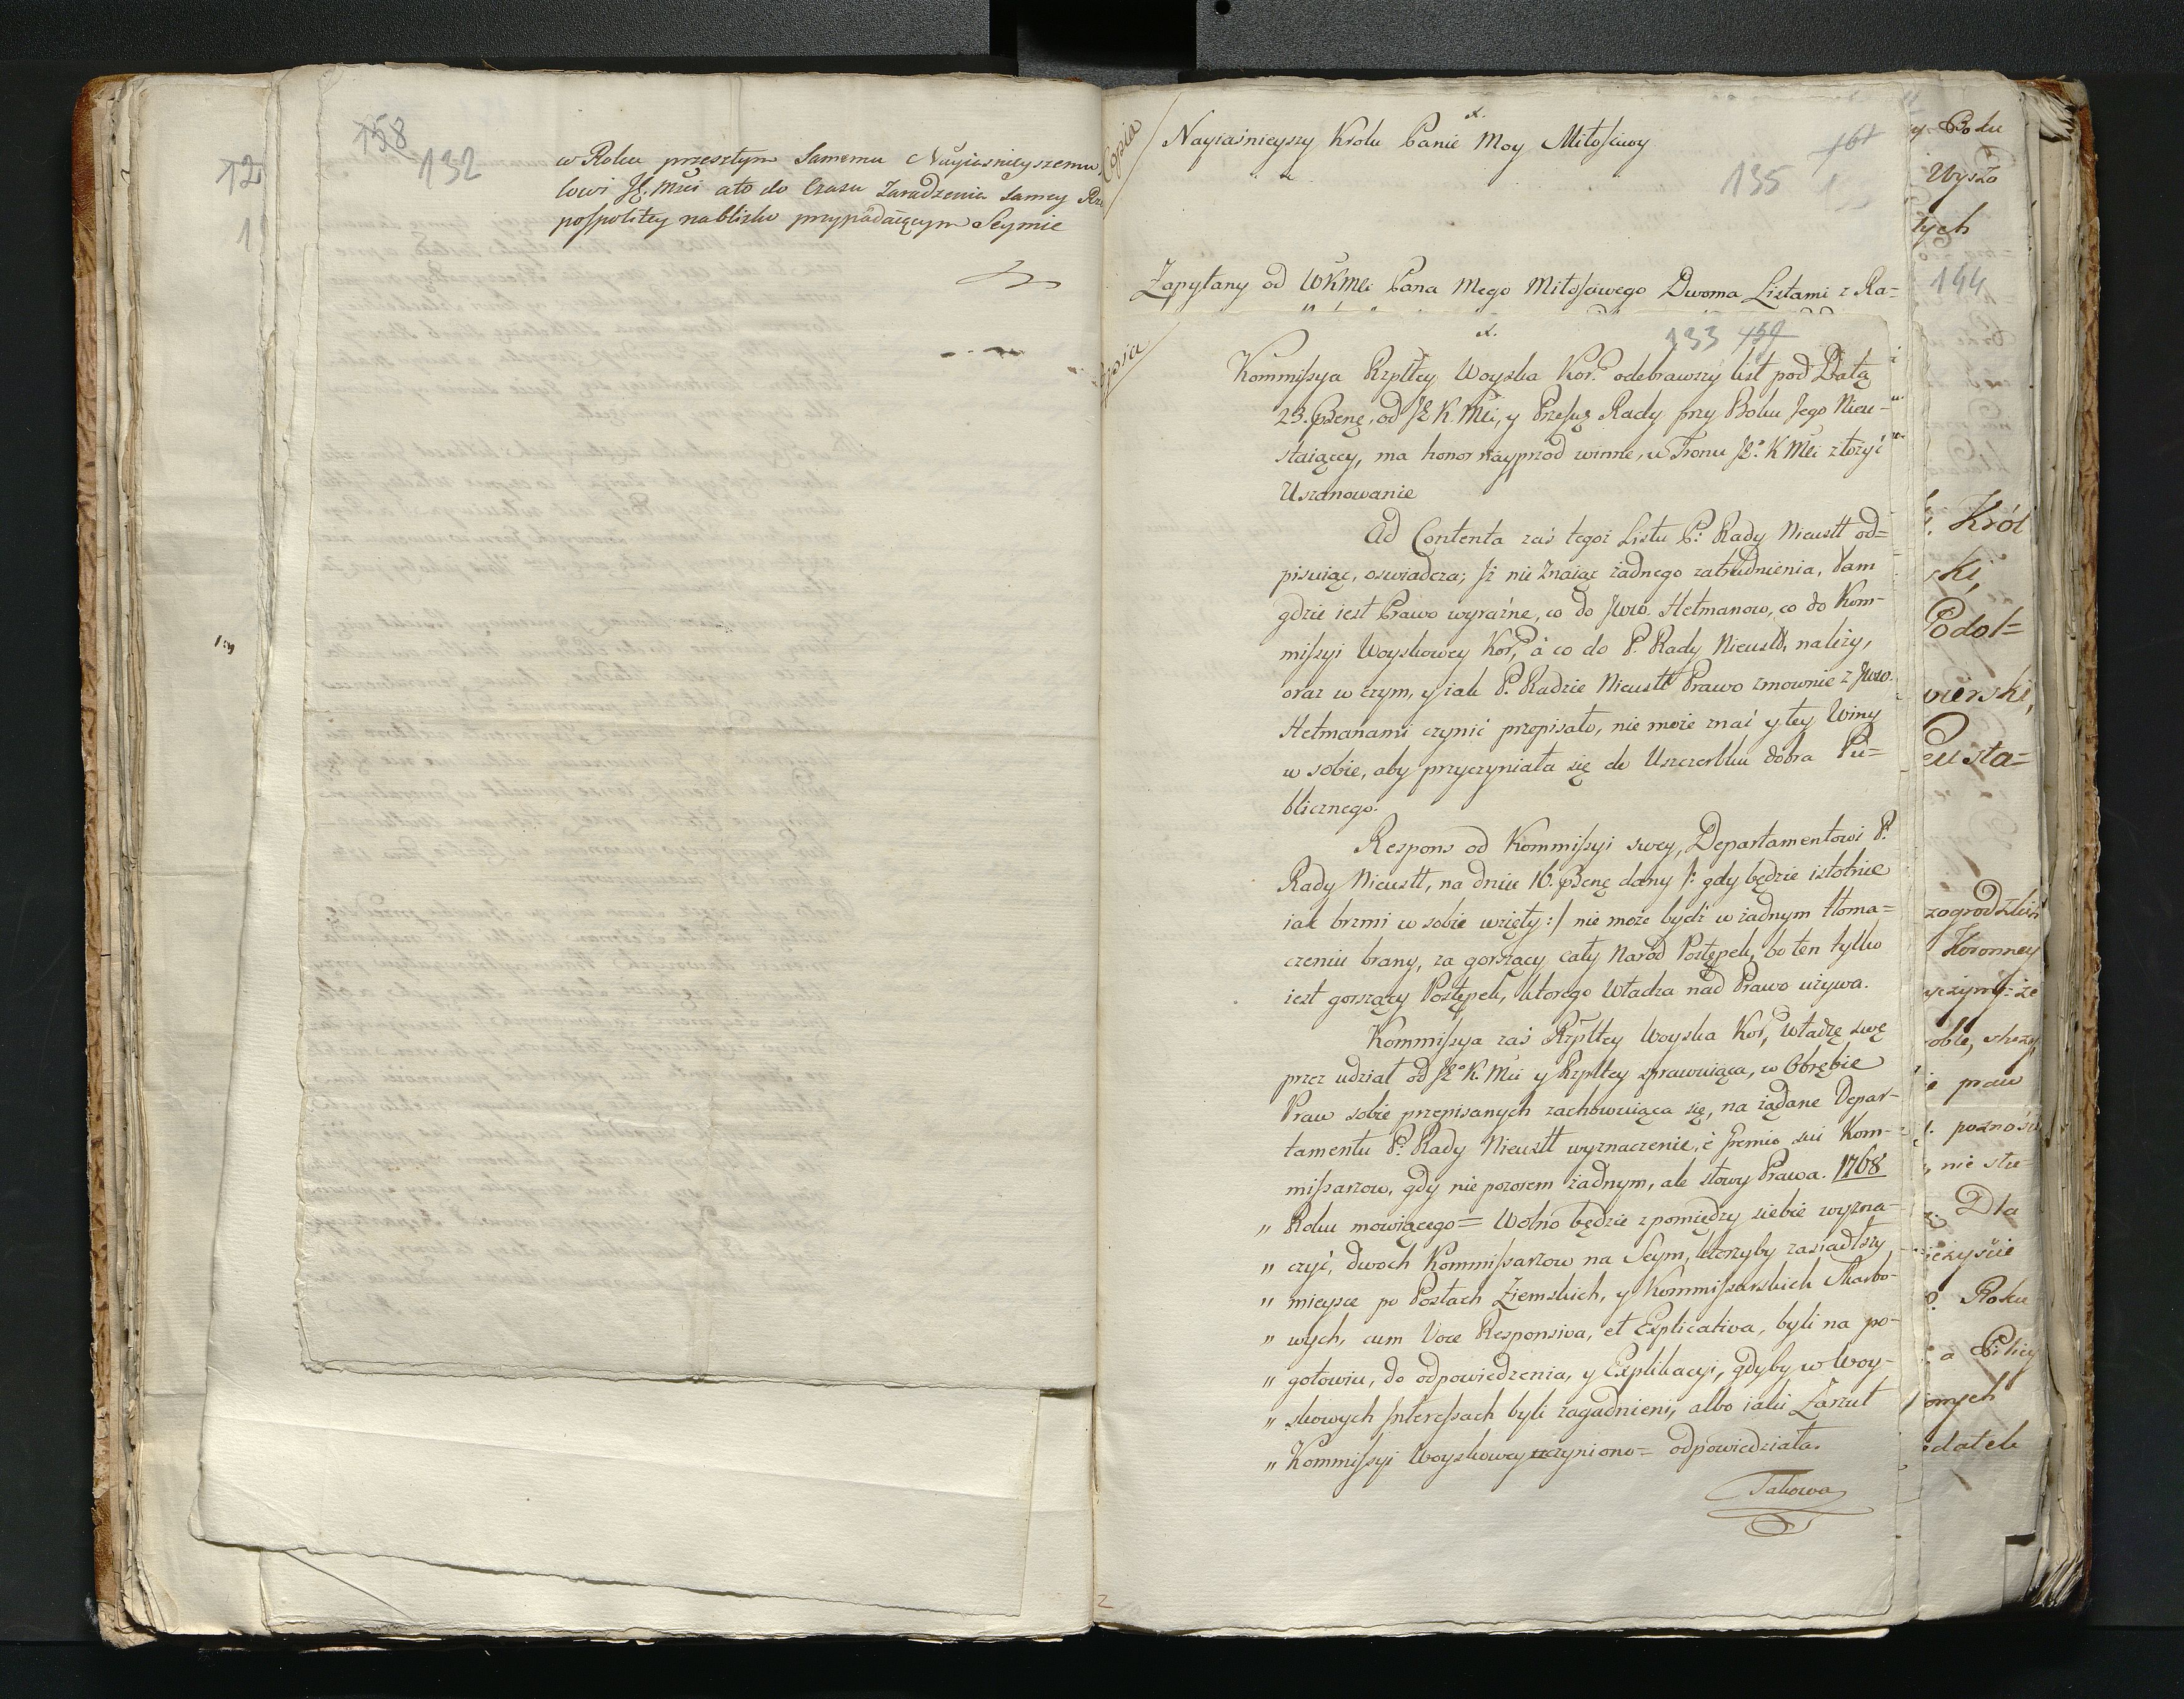 158
132
12
w Roku przeszłym Samemu Nayiasnieyszemu
lowi JE. Mści ato do Czasu Zaradzenia Samey Rze
pospolitey nablisko przypadaiącym Seymie
Copia
x.
Nayiasnieyszy Krolu Panie Moy Miłosciwy
161
135
Zapytany od WKMci Pana Mego Miłosciwego Dwoma Listami z Ra=
opia
x.
133 159
Kommissya Rzpltey Woyska Kor. odebrawszy list pod Datą
23. Xbena, od JE K. Mci, y Przeswę Rady przy Boku Jego Nieu-
staiącey, ma honor nayprzod winne, u Tronu JE.o K Mci złożyć
Uszanowanie
Ad Contenta zaś tegoż Listu P: Rady Nieustt od=
pisuiąc, oswiadcza; Jż nie znaiąc żadnego zatrudnienia, Tam
gdzie iest Prawo wyraźne, co do Jww. Hetmanow, co do Kom-
missyi Woyskowey Kor, á co do P. Rady Nieustt, należy,
oraz w czym, y iak P. Radzie Nieustt Prawo zmownie z Jww.
Hetmanami czynić przepisało, nie może znać y tey Winy
w sobie, aby przyczyniała się do Uszczerbku dobra Pu=
blicznego.
Respons od Kommissyi swey, Departamentowi P.
Rady Nieustt, na dniu 16. Xbena dany /: gdy będzie istotnie
iak brzmi w sobie wzięty :/ nie może bydź w żadnym tłoma=
czeniu brany, za gorszący cały Narod Postępek, bo ten tylko
iest gorszący Postępek, ktorego Władza nad Prawo używa.
Kommissya zaś Rzpltey Woyska Kor, władzę swę
przez udział od JE.o K. Mci y Rzpltey sprawuiąca, w Obrębie
Praw sobie przepisanych zachowuiąca się, na żądane Depar-
tamentu P: Rady Nieustt wyznaczenie, é Gremio sui Kom-
missarzow, gdy nie pozorem żadnym, ale słowy Prawa. 1768
„ Roku mowiącego = Wolno będzie zpomiędzy siebie wyzna-
„ czyć, dwoch Kommissarzow na Seym, ktorzyby zasiadłszy
„ mieysce po Posłach Ziemskich, y Kommissarskich Skarbo-
„ wych, cum Voce Responsiva, et Explicativa, byli na po-
„ gotowiu, do odpowiedzenia, y Explikacyi, gdyby w Woy-
„ skowych Interessach byli zagadnieni, albo iaki Zarzut
„ Kommissyi Woyskowey uczyniono = odpowiedziała.
Takowa
y Boku
Wyszo
tych
144
Król
ski,
Podol=
wierski,
eusta=
zogrodzkiś
Koronney
yczymy: że
praw
nie stu
Dla
Roku
a Pilicy
omych
datek